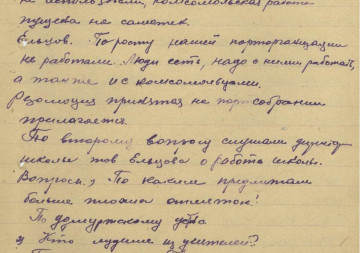 не использовали, комсомольская работа
пущена на самотек.
Ельцов. По росту нашей парторганизации
не работали. Люди есть, надо с ними работать,
а также и с комсомольцами.
Резолюция принятая на партсобрании
прилагается.
По второму вопросу слушали директора
школы тов Ельцова о работе школы.
Вопросы. 1) По каким предметам
больше плохих отметок?
По
2) Кто лучшие из учителей?